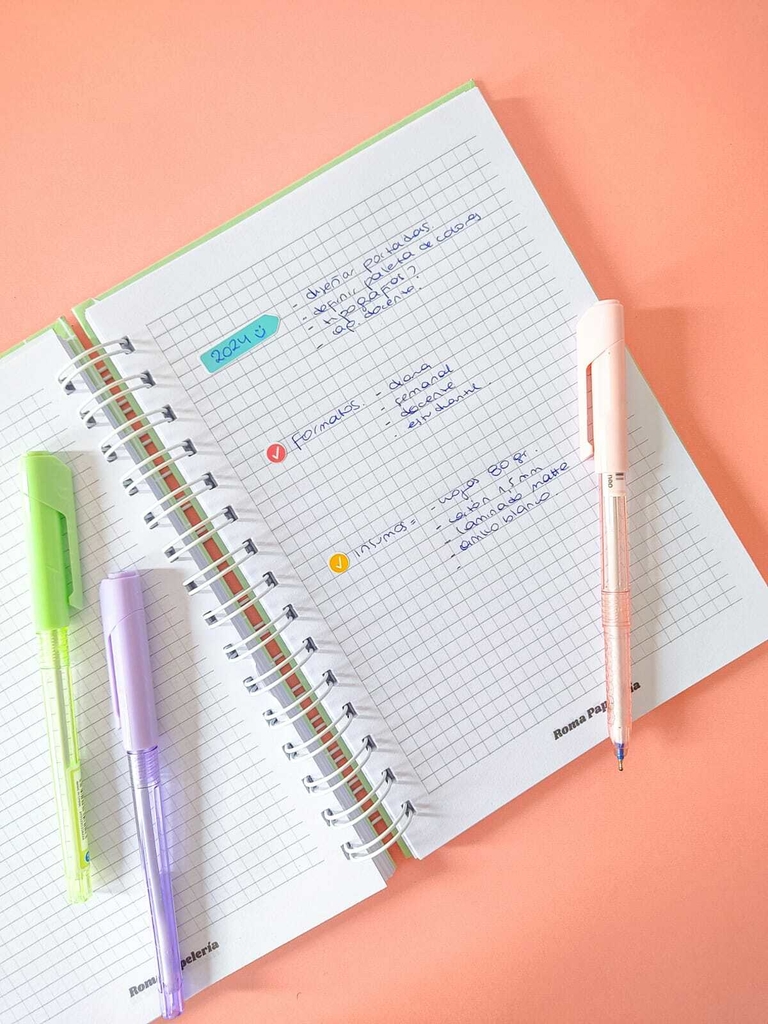 2024
- diseñar portadas.
- definir paleta de colores
- tipografias?
- ap. docente.
-
Formatos - diaria
- semanal
- docente
- estudiante.
insumos = - hojas 80 gr.
- cartón 1,5 mm
- laminado matte
- anillo blanco
-
neo
Roma Pap ía
Roma pelería